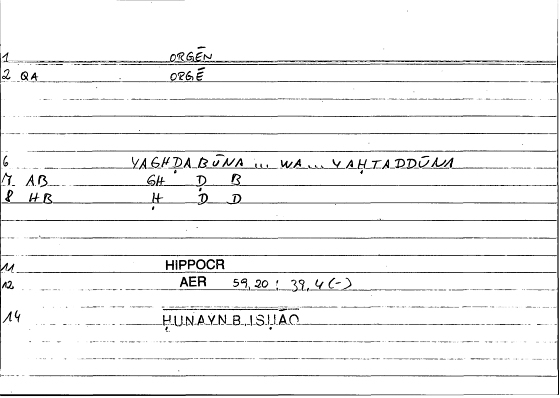 1 ORGĒN
2 QA ORGĒ
6 YAGHḌABŪNA ... WA... YAḤTADDŪNA
7 AB GH Ḍ B
8 HB Ḥ D D
11 HIPPOCR
12 AER 59,20 : 39,4 (-)
14 ḤUNAYN B. ISḤĀQ